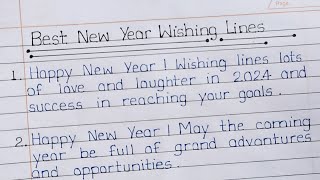 Best New Year Wishing Lines
1. Happy New Year ! Wishing lines lots
of love and laughter in 2024 and
success in reaching your goals.
2. Happy New Year ! May the coming
year be full of grand advantures
and opportunities.